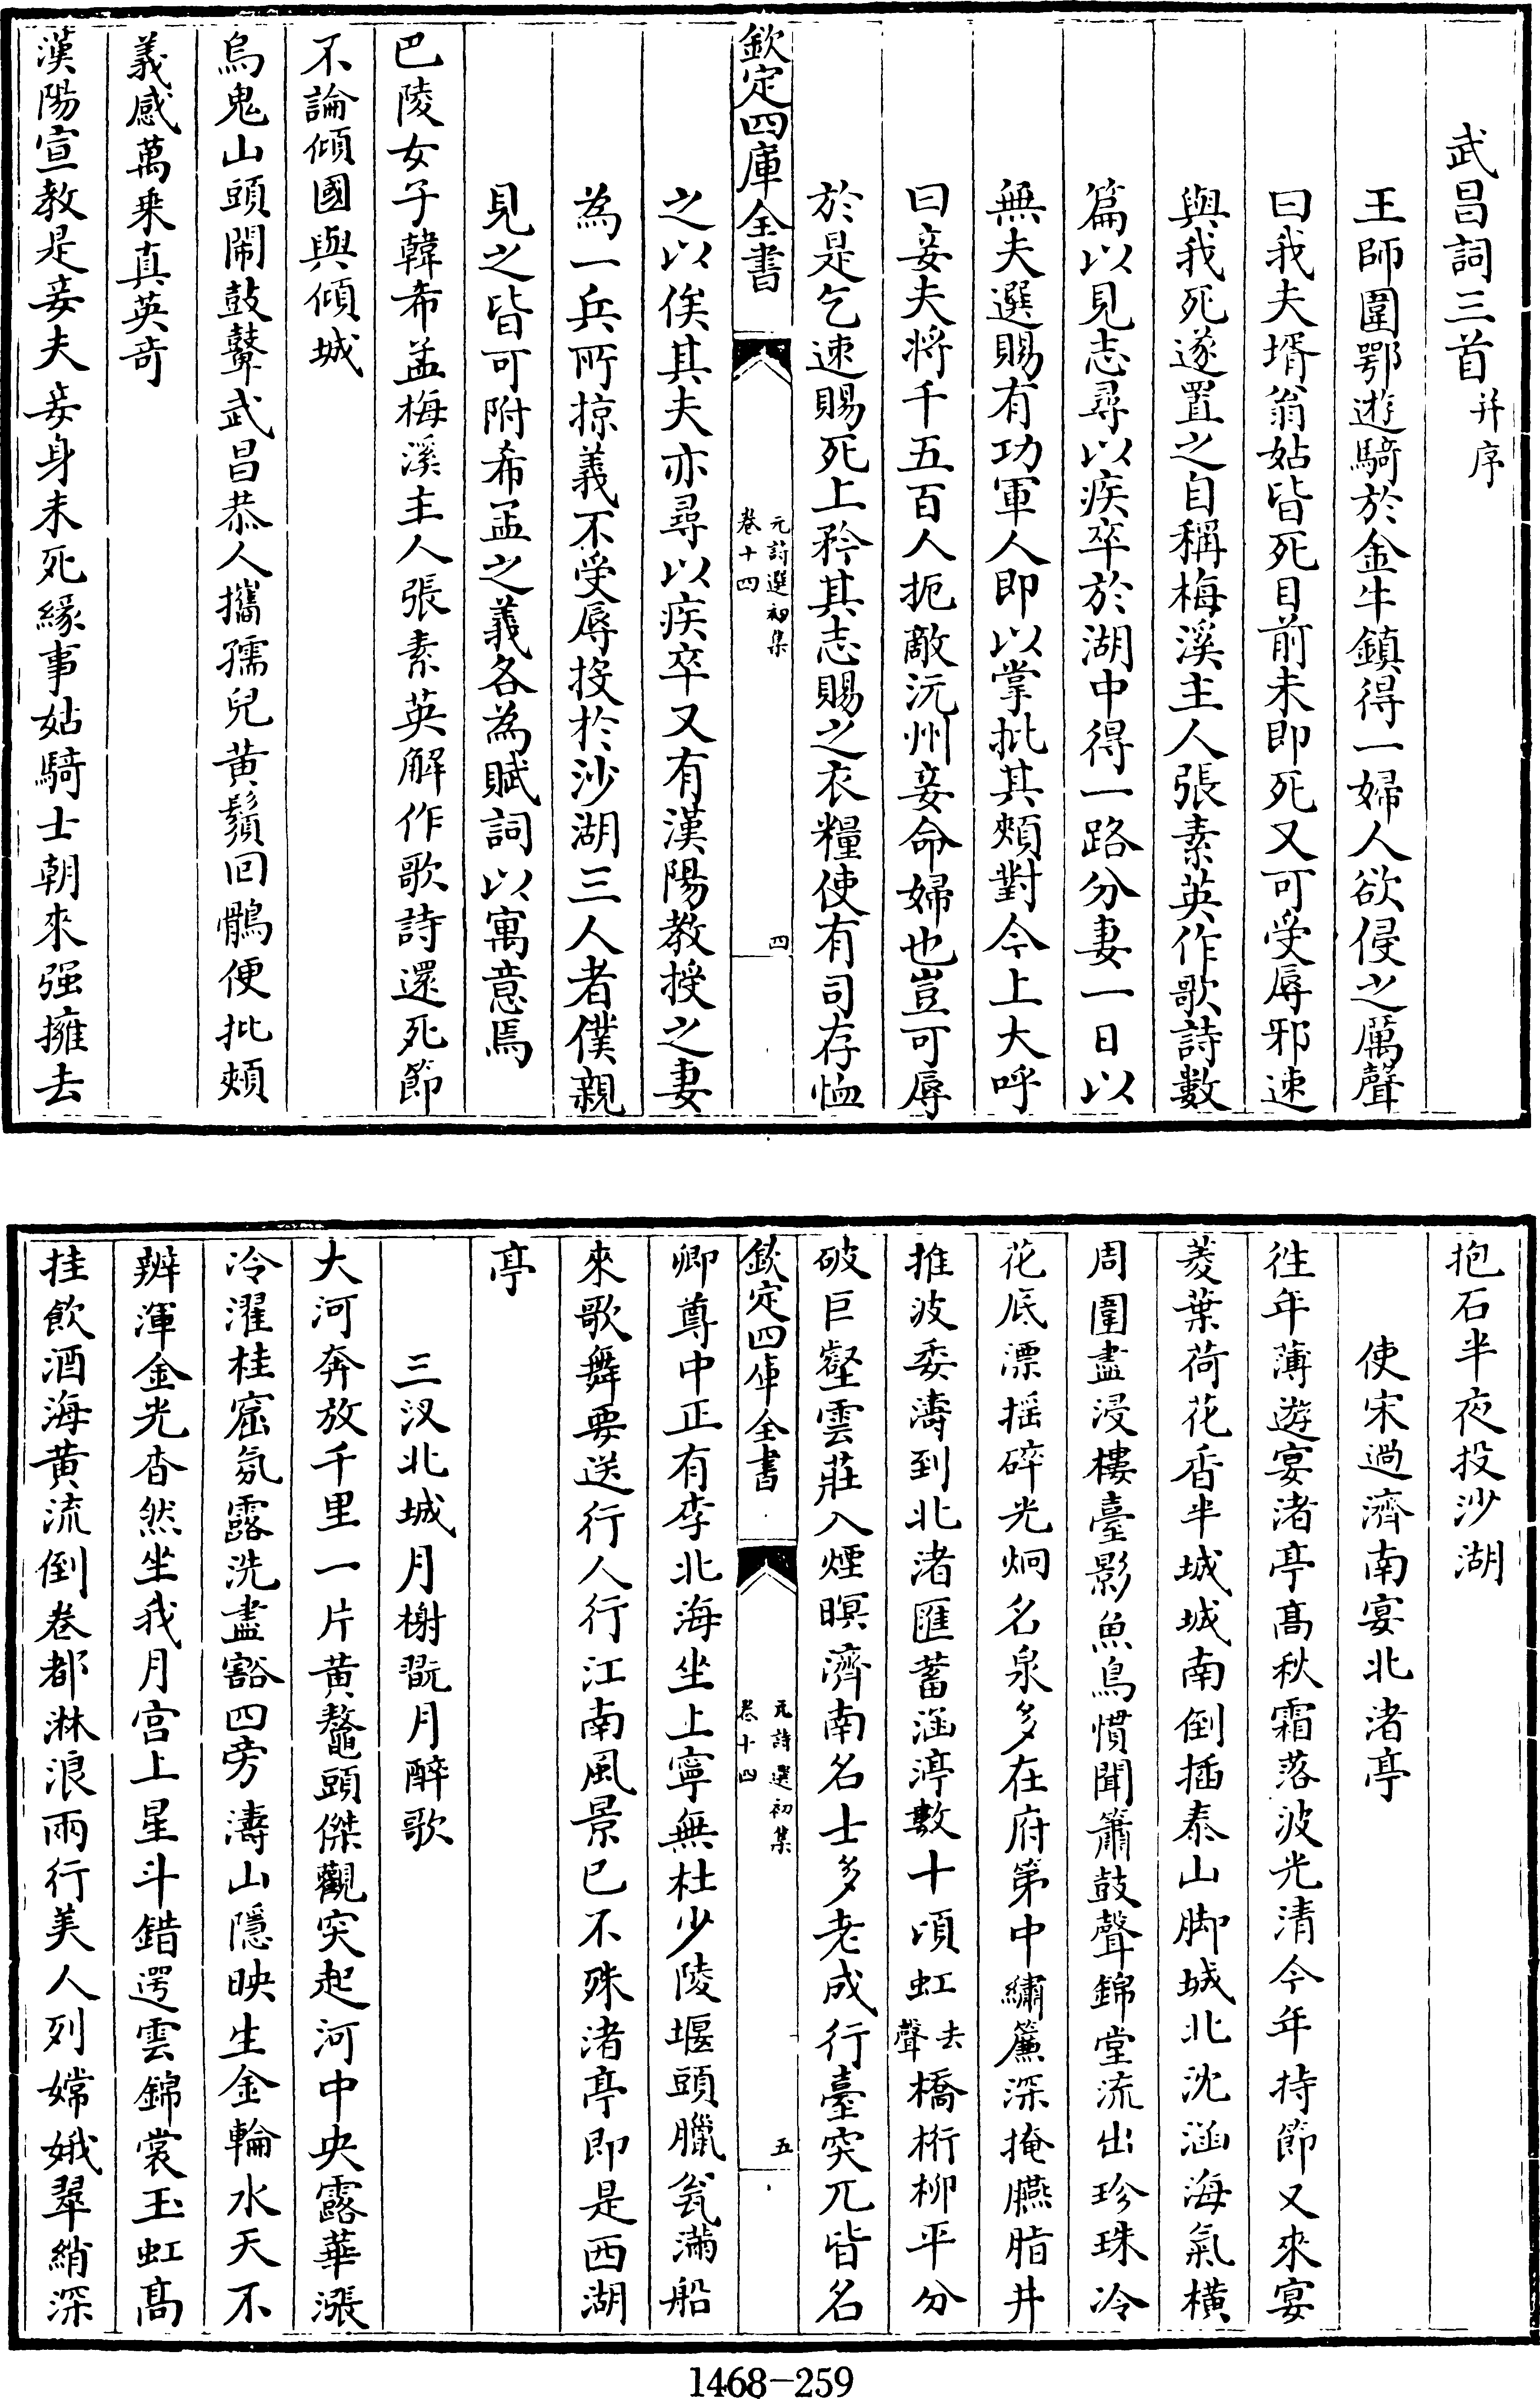 武昌詞三首并序
王師圍鄂遊騎於金牛鎮得一婦人欲侵之厲聲
曰我夫壻翁姑皆死目前未即死又可受辱邪速
與我死遂置之自稱梅溪主人張素英作歌詩數
篇以見志尋以疾卒於湖中得一路分妻一日以
無夫選賜有功軍人即以掌批其頰對今上大呼
曰妾夫將千五百人扼敵沅州妾命婦也豈可辱
於是乞速賜死上矜其志賜之衣糧使有司存恤
欽定四庫全書
元詩選初集
卷十四
四
之以俟其夫亦尋以疾卒又有漢陽教授之妻
為一兵所掠義不受辱投於沙湖三人者僕親
見之皆可附希孟之義各為賦詞以寓意焉
巴陵女子韓希孟梅溪主人張素英解作歌詩還死節
不論傾國與傾城
烏鬼山頭鬧鼓鼙武昌恭人攜孺兒黄鬚回鶻便批頰
義感萬乗真英奇
漢陽宣教是妾夫妾身未死緣事姑騎士朝來强擁去
抱石半夜投沙湖
使宋過濟南宴北渚亭
徃年薄遊宴渚亭髙秋霜落波光清今年持節又來宴
菱葉荷花香半城城南倒插泰山脚城北沈涵海氣横
周圍盡浸樓臺影魚鳥慣聞簫鼓聲錦堂流出珍珠冷
花底漂摇碎光炯名泉多在府第中繡簾深掩臙脂井
推波委濤到北渚匯蓄涵渟數十頃虹去聲橋桁柳平分
破巨壑雲莊入煙暝濟南名士多老成行臺突兀皆名
欽定四庫全書
元詩選初集
卷十四
五
卿尊中正有李北海坐上寧無杜少陵堰頭臘瓮滿船
來歌舞要送行人行江南風景已不殊渚亭即是西湖
亭
三汊北城月榭翫月醉歌
大河奔放千里一片黄鼇頭傑觀突起河中央露華漲
冷濯桂窟氛露洗盡豁四旁濤山隱映生金輪水天不
辨渾金光杳然坐我月宫上星斗錯遻雲錦裳玉虹髙
挂飲酒海黄流倒卷都淋浪兩行美人列嫦娥翠綃深
1468-259